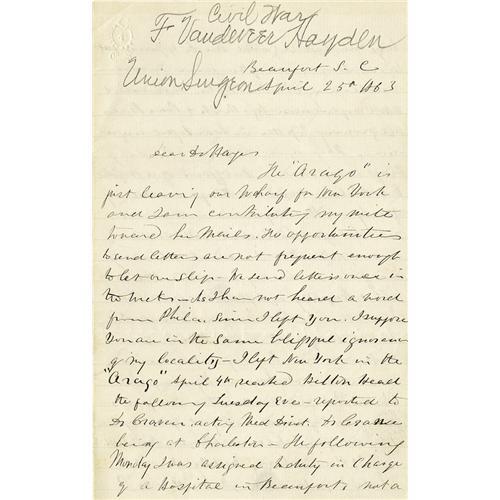 Civil War
F. Vandeveer Hayden
Union Surgeon
Beaufort S. C
April 25th 1863
Dear Dr Hayes
The "Arago" is
just leaving our Wharf for New York
and I am contributing my mite
toward her mails. The opportunities
to send letters are not frequent enough
to let one slip. We send letters once in
two weeks - As I have not heard a word
from Phila. since I left you. I suppose
you are in the same blissful ignorance
of my locality - I left New York in the
"Arago" April 4th reached Hilton Head
the following Tuesday Eve - reported to
Dr Craven, acting Med Direct. Dr Crane
being at Charleston - The following
Monday I was assigned to duty in charge
of a Hospital in Beaufort, not a